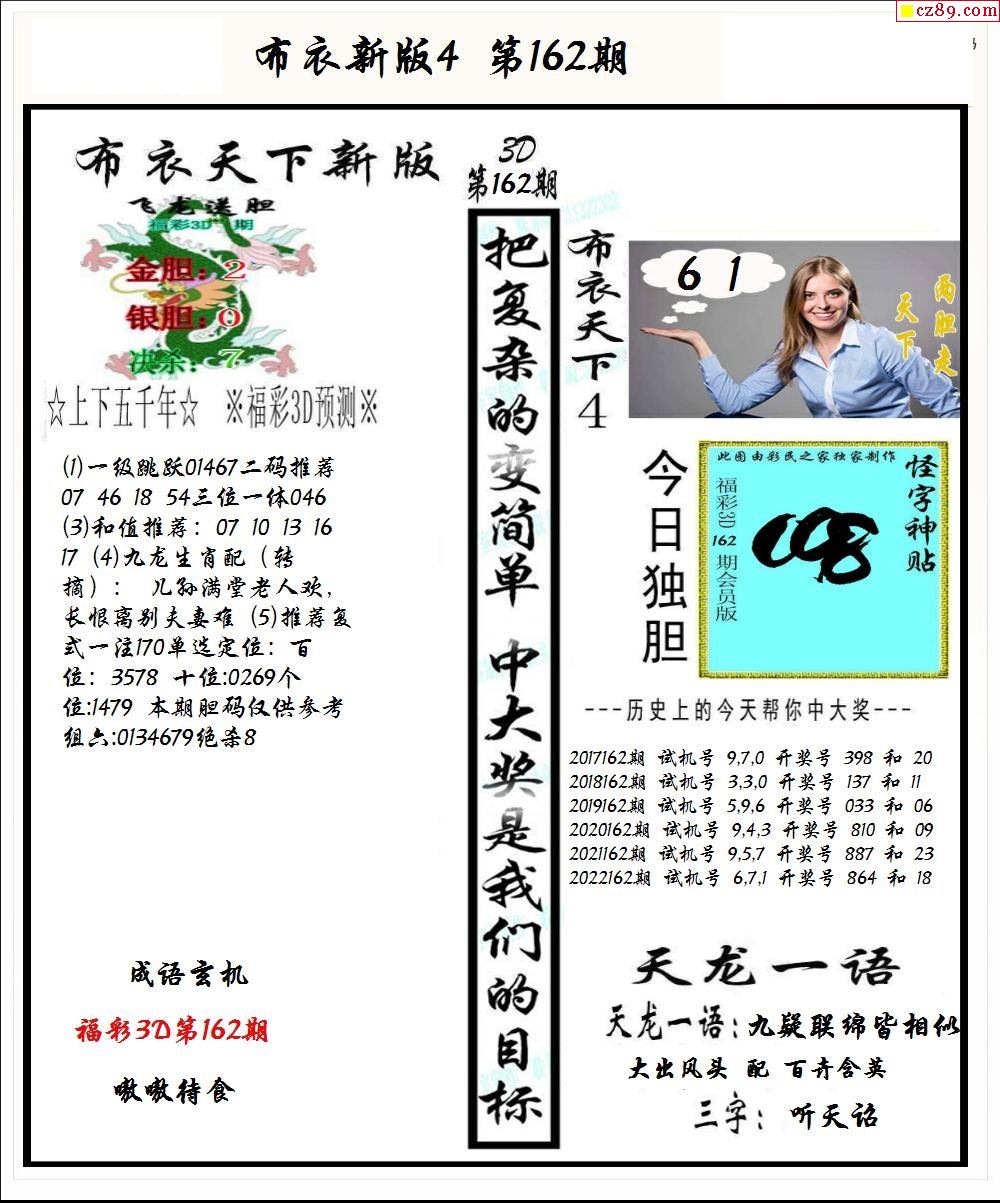 cz89.com
布衣新版4 第162期
布衣天下新版
飞龙送胆
福彩3D 期
金胆：2
银胆：0
决杀：7
☆上下五千年☆ ※福彩3D预测※
(1)一级跳跃01467二码推荐
07 46 18 54三位一体046
(3)和值推荐：07 10 13 16
17 (4)九龙生肖配（转
摘）： 儿孙满堂老人欢，
长恨离别夫妻难 (5)推荐复
式一注170单选定位：百
位：3578 十位:0269个
位:1479 本期胆码仅供参考
组六:0134679绝杀8
成语玄机
福彩3D第162期
嗷嗷待食
3D
第162期
把复杂的变简单 中大奖是我们的目标
布衣天下4
6 1
两胆走
天下
今日独胆
此图由彩民之家独家制作
怪字神贴
福彩3D 162 期会员版
---历史上的今天帮你中大奖---
2017162期 试机号 9,7,0 开奖号 398 和 20
2018162期 试机号 3,3,0 开奖号 137 和 11
2019162期 试机号 5,9,6 开奖号 033 和 06
2020162期 试机号 9,4,3 开奖号 810 和 09
2021162期 试机号 9,5,7 开奖号 887 和 23
2022162期 试机号 6,7,1 开奖号 864 和 18
天龙一语
天龙一语：九疑联绵皆相似
大出风头 配 百卉含英
三字： 听天诏